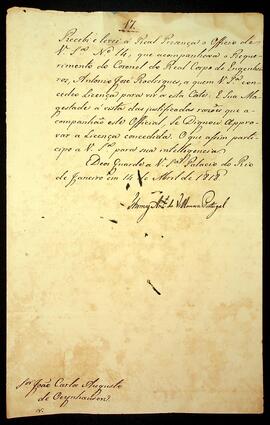 17.
Recebi e levei á Real Prezença o Officio de
V.ª S.ª N.º 14, que acompanhava o Reque-
rimento do Coronel do Real Corpo de Engenhei-
ros, Antonio Joze Rodrigues, a quem V. S.ª con-
cedeo Licença para vir a esta Corte. E Sua Ma-
gestade á vista das justificadas razões que a-
companhão este Official, Se Dignou Appro-
var a Licença concedida. O que assim parti-
cipo a V. S.ª para sua intelligencia.
Deos Guarde a V. S.ª Palacio do Rio
de Janeiro em 14 de Abril de 1818
Thomaz Ant.º de Villanova Portugal
Snr João Carlos Augusto
de Oeynhausen